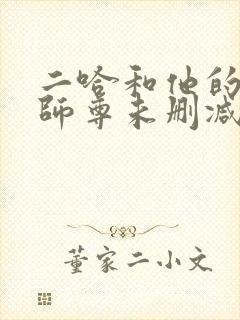 二哈和他的
師尊未删减
董家二小文